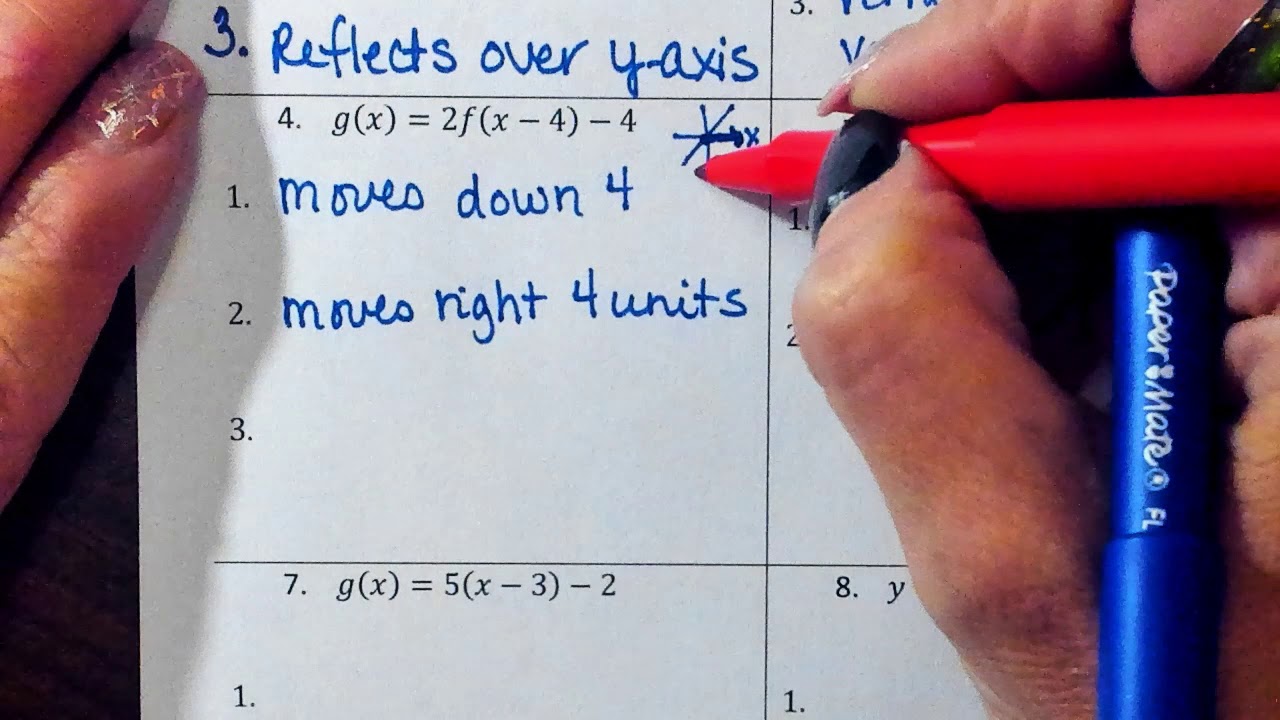 3.
3. Reflects over y-axis
4. g(x) = 2f(x − 4) − 4
x
1. moves down 4
1.
2. moves right 4 units
2
3.
7. g(x) = 5(x − 3) − 2
8. y
1.
1.
Paper Mate FL